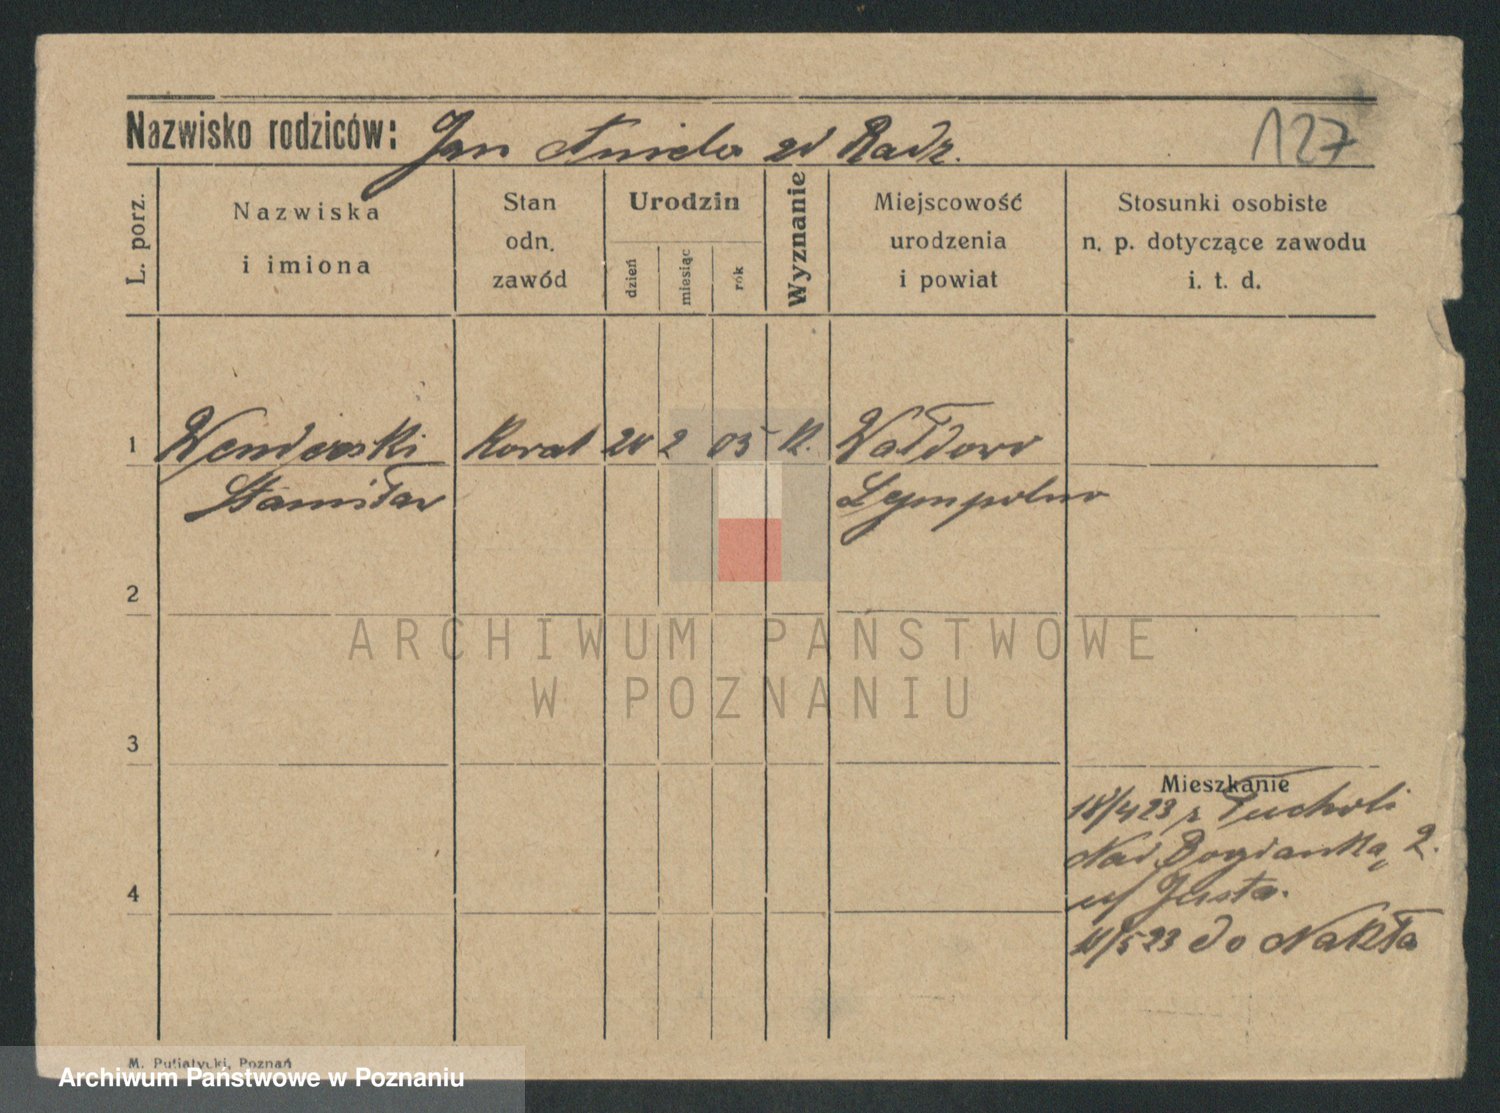 Nazwisko rodziców: Jan Aniela zd Radz. 127
L. porz.
Nazwiska
i imiona
Stan
odn.
zawód
Urodzin
dzień
miesiąc
rok
Wyznanie
Miejscowość
urodzenia
i powiat
Stosunki osobiste
n. p. dotyczące zawodu
i. t. d.
1 2 05 K. Wałdowo
Stanisław
2
3
4
Mieszkanie
18/4 23 z Tucholi
Nad Bogdanką 2.
u/ Justa.
11/5 23 do Nakła
ARCHIWUM PAŃSTWOWE
W POZNANIU
M. Putiatycki, Poznań
Archiwum Państwowe w Poznaniu